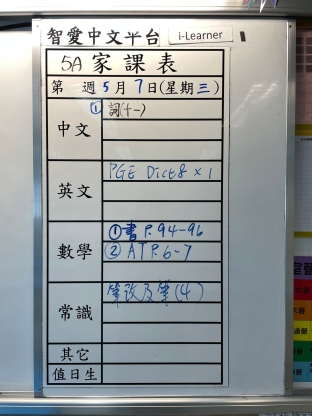 智愛中文平台 i-Learner
5A 家課表
第 週 5月7日(星期三)
中文 ① 詞(十一)
英文 PGE Dict8 x 1
數學 ① 書 P.94-96
② AT P.6-7
常識 筆改及簽(4)
其它
值日生